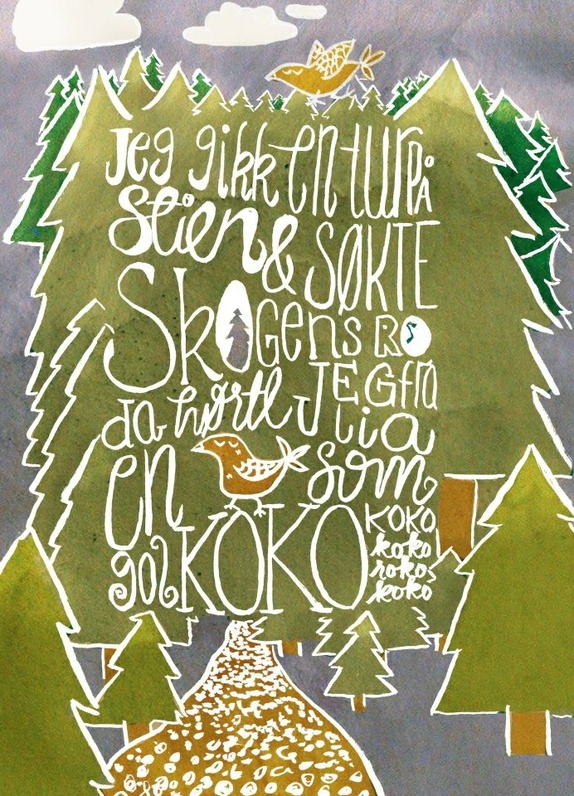 Jeg gikk en tur PÅ
Stien & SØKTE
Skogens RO
da hørte JEG fra
lia
en som
gol KOKO KOKO
koko
roko
koko